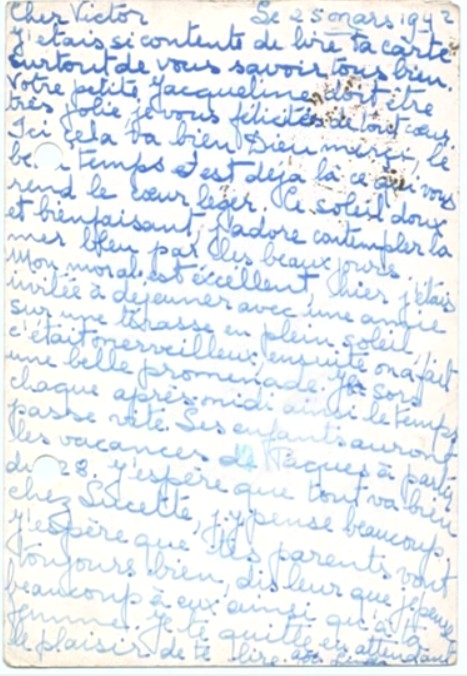 Cher Victor Le 25 mars 1942
j'étais si contente de lire ta carte
surtout de vous savoir tous bien.
Votre petite Jacqueline doit être
très jolie je vous félicités de tout cœur.
Ici cela va bien Dieu merci, le
temps c'est déjà là ce qui vous
rend le cœur léger. Ce soleil doux
et bienfaisant, j'adore contempler la
mer bleu par les beaux jours.
Mon moral est excellent, hier j'étais
invitée à déjeuner avec une amie
sur une terasse en plein soleil,
c'était merveilleux, ensuite on a fait
une belle promenade. Je sors
chaque après-midi ainsi le temps
passe vite. Les enfants auront
les vacances de Pâques à partir
du 28. j'espère que tout va bien
chez Lucette, j'y pense beaucoup,
j'espère que les parents vont
toujours bien, dis leur que je pense
beaucoup à eux ainsi qu'à ta
femme. Je te quitte en attendant
le plaisir de te lire